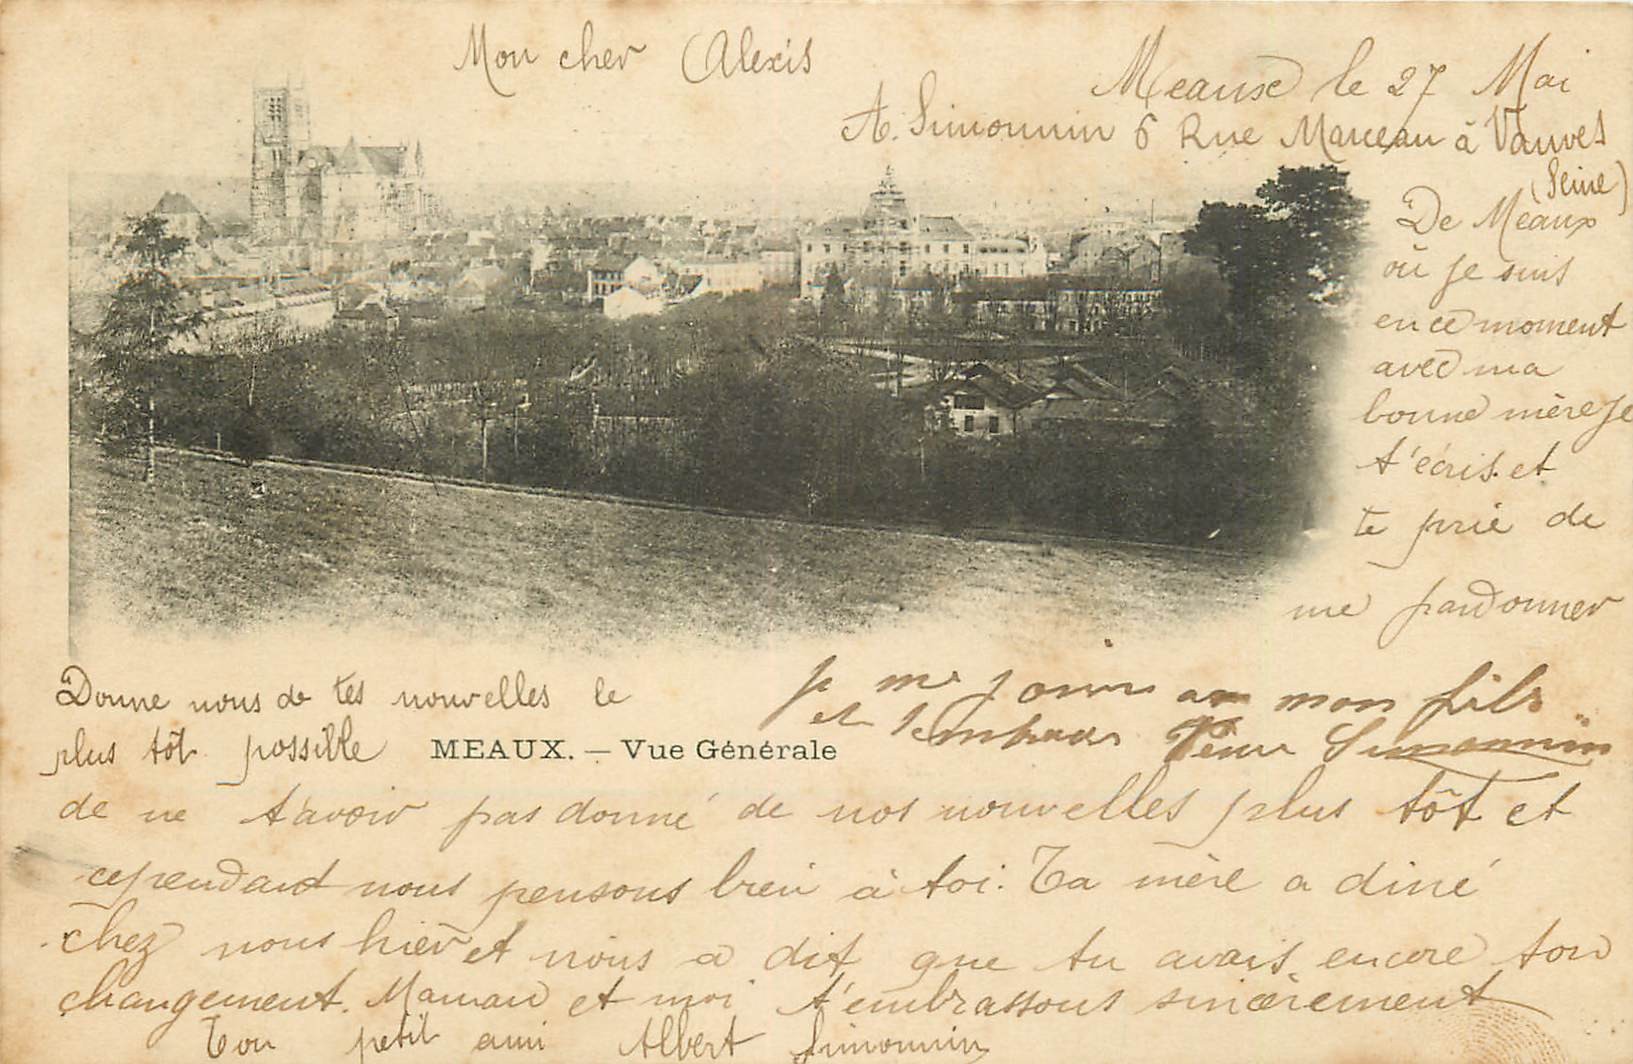 Mon cher Alexis
Meaux le 27 Mai
A. Simonnin 6 Rue Marceau à Vanves
(Seine)
De Meaux
où je suis
en ce moment
avec ma
bonne mère je
t'écris et
te prie de
me pardonner
de ne t'avoir pas donné de nos nouvelles plus tôt et
cependant nous pensons bien à toi. Ta mère a diné
chez nous hier et nous a dit que tu avais encore ton
changement. Maman et moi t'embrassons sincèrement
Ton petit ami Albert Simonnin
Donne nous de tes nouvelles le
plus tôt possible
MEAUX. — Vue Générale
Je me joins a mon fils
et t'embrasse Simonnin